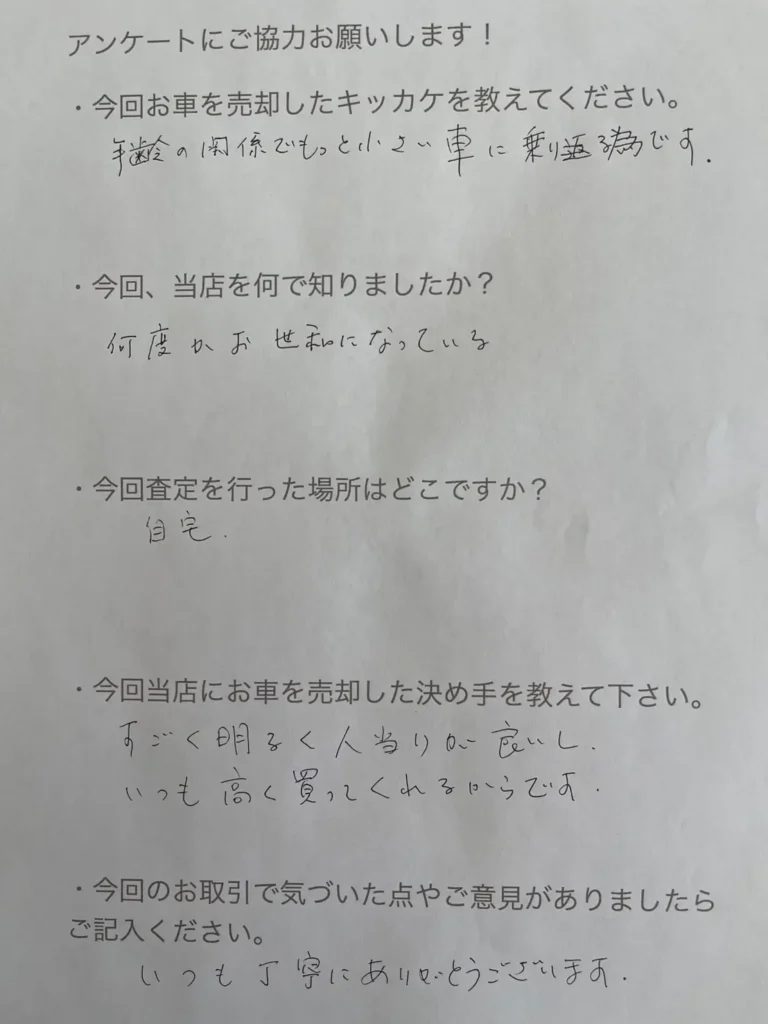 アンケートにご協力お願いします！
・今回お車を売却したキッカケを教えてください。
年齢の関係でもっと小さい車に乗り返る為です.
・今回、当店を何で知りましたか？
何度かお世和になっている
・今回査定を行った場所はどこですか？
自宅.
・今回当店にお車を売却した決め手を教えて下さい。
すごく明るく人当りが良いし.
いつも高く買ってくれるからです.
・今回のお取引で気づいた点やご意見がありましたら
ご記入ください。
いつも丁寧にありがとうございます.